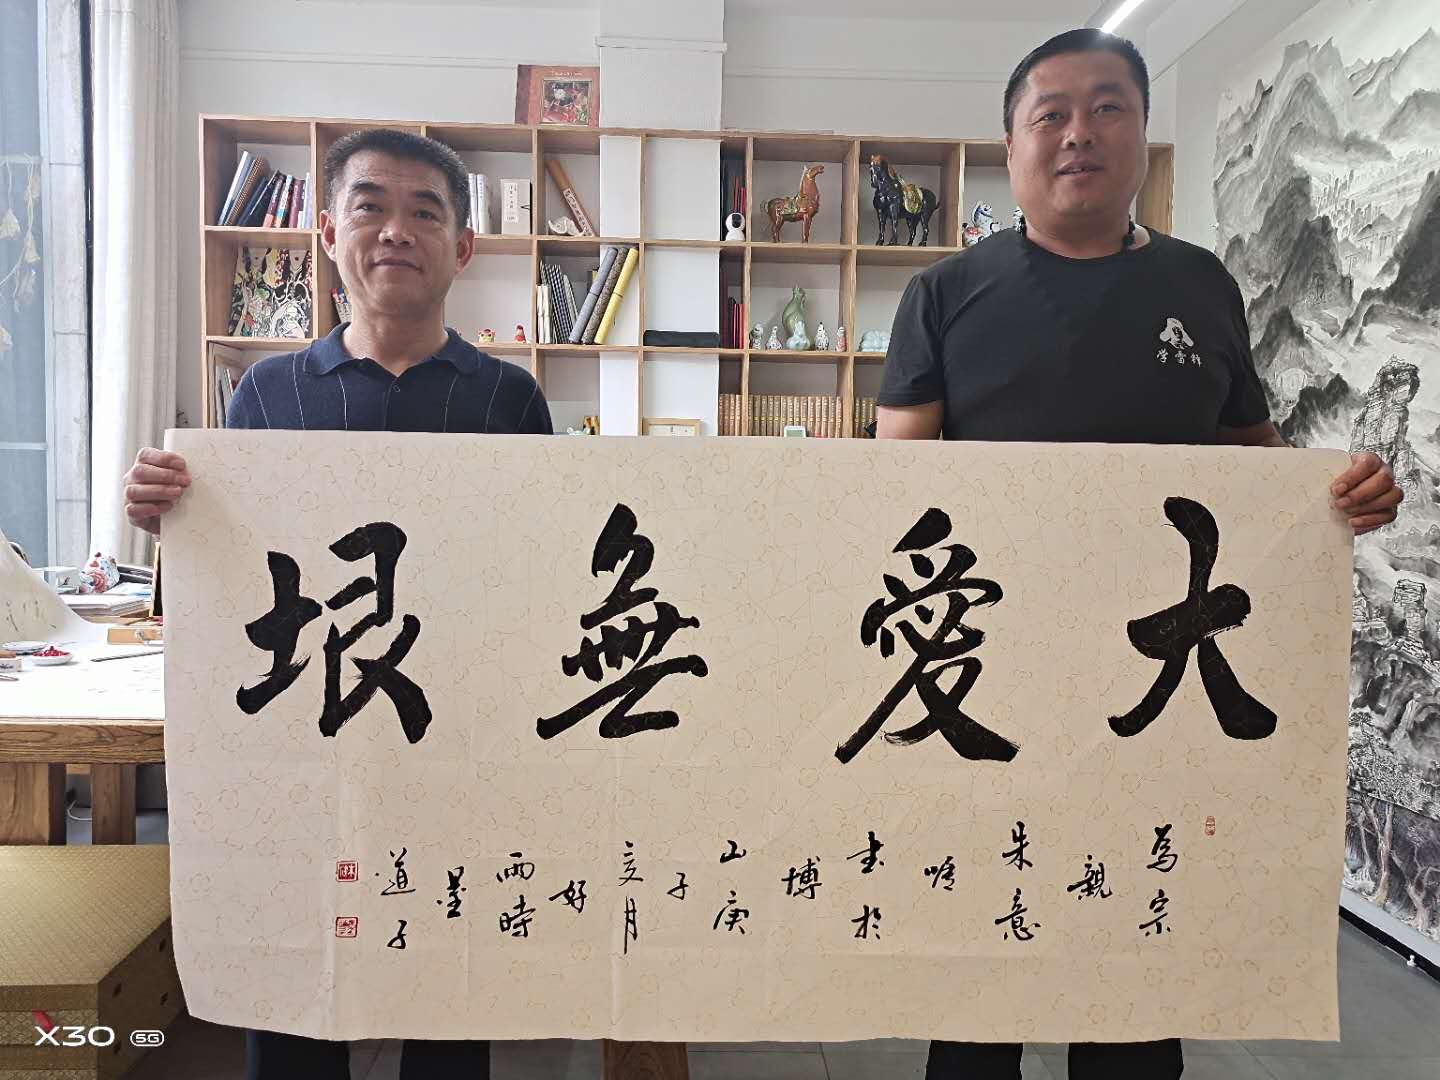 大愛無垠
為宗
親
朱意
書於
博
山庚
子
夏月
好
雨時
墨
道子
学雷锋
X30 5G